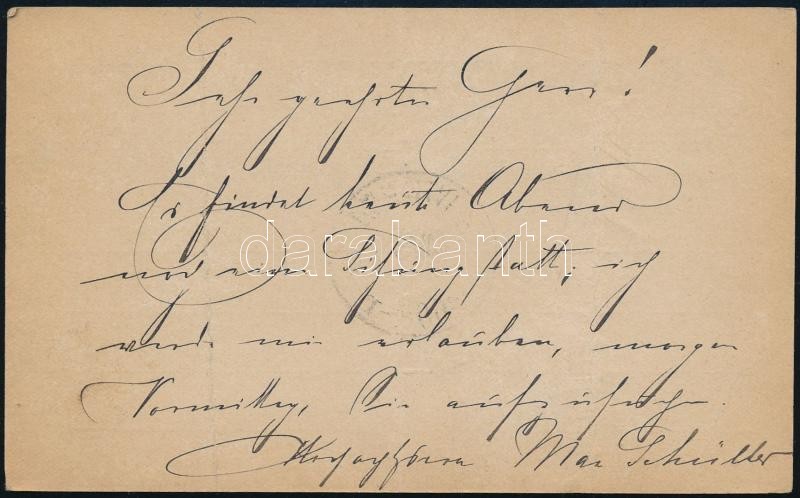 Sehr geehrter Herr!
Es findet heute Abend
noch eine Sitzung statt; ich
werde mir erlauben, morgen
Vormittag, Sie aufzusuchen.
Hochachtend Max Schüller
darabanth